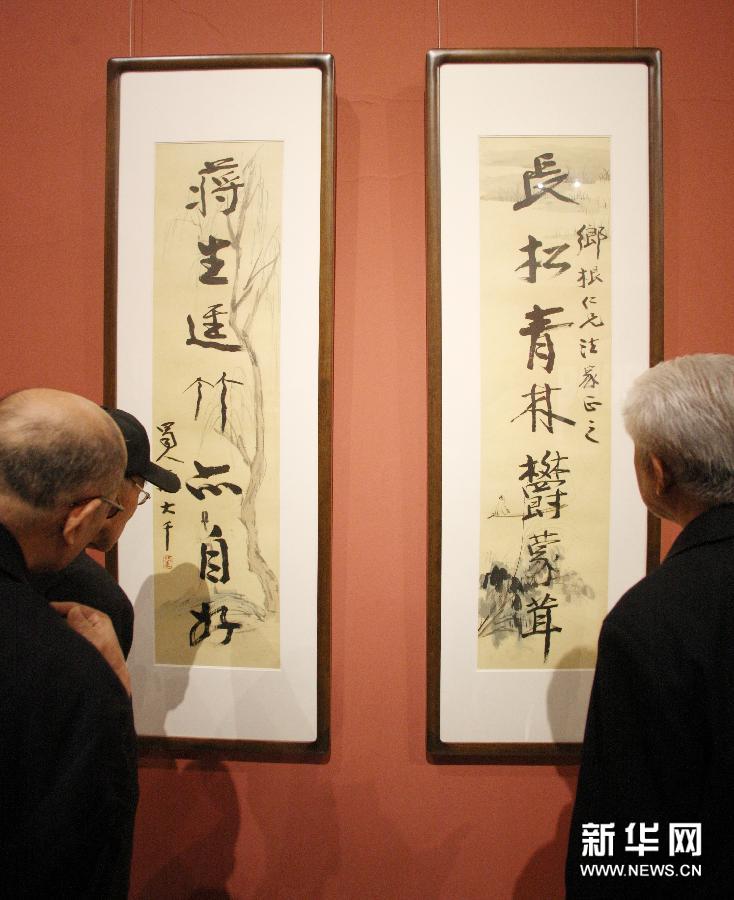 長松青林鬱蒙茸
鄉根仁兄法家正之
蔣生逕竹亦自好
蜀人 大千
新华网
WWW.NEWS.CN